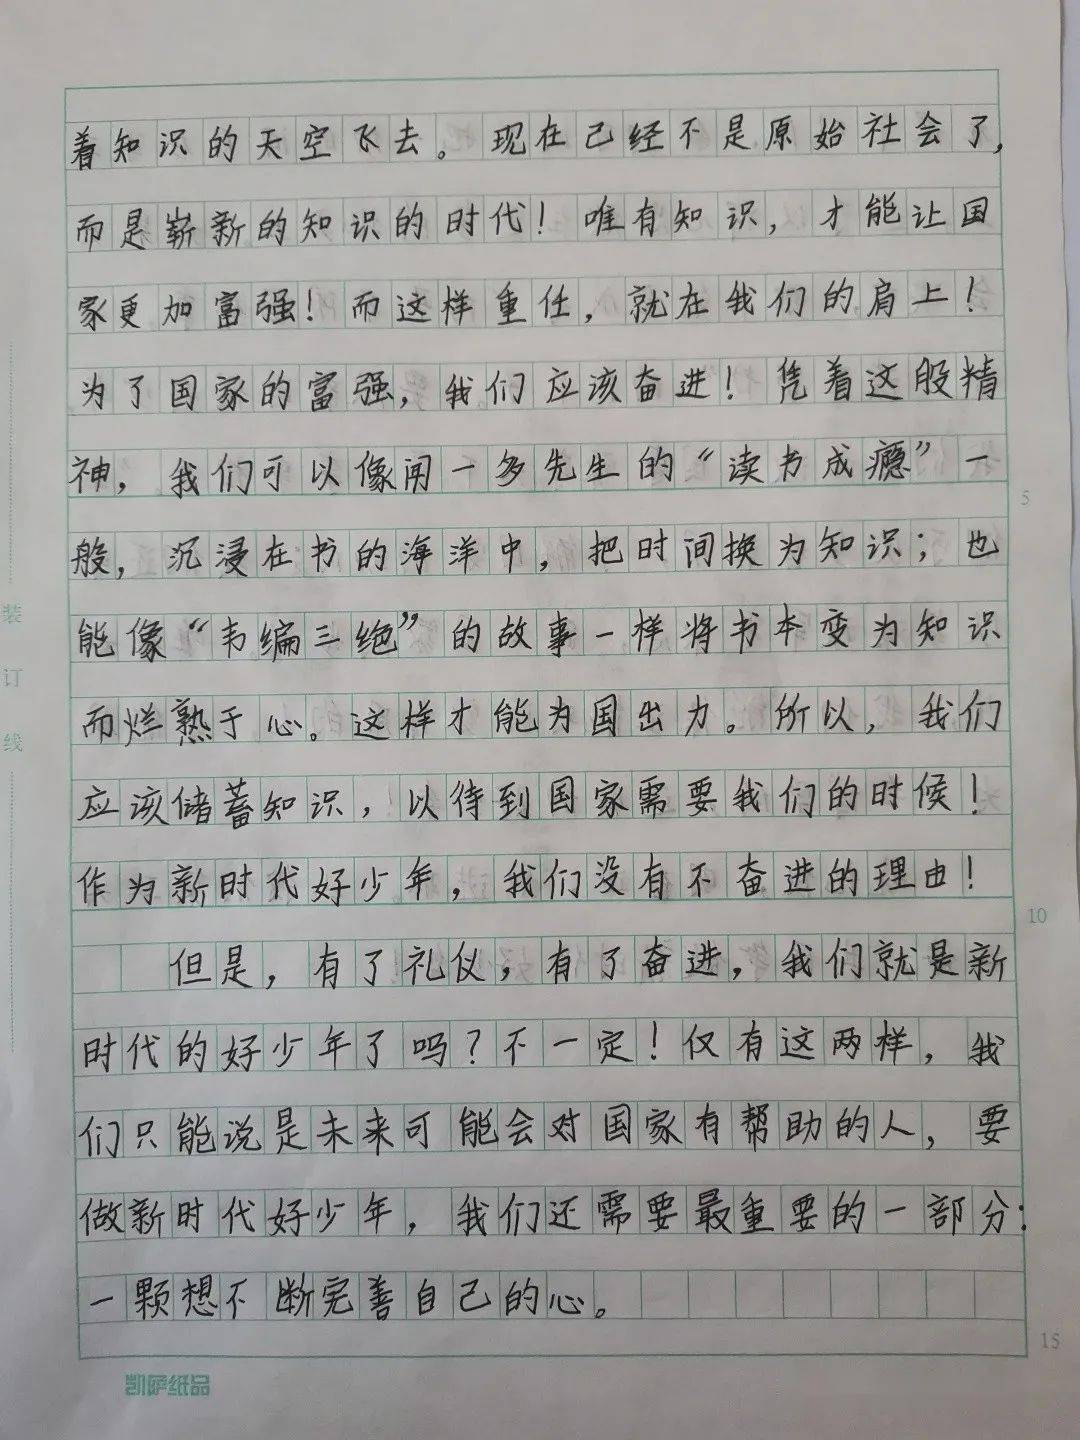 着知识的天空飞去。现在己经不是原始社会了,
而是崭新的知识的时代！唯有知识，才能让国
家更加富强！而这样重任，就在我们的肩上！
为了国家的富强，我们应该奋进！凭着这股精
神，我们可以像闻一多先生的“读书成瘾”一
般，沉浸在书的海洋中，把时间换为知识；也
能像“韦编三绝”的故事一样将书本变为知识
而烂熟于心。这样才能为国出力。所以，我们
应该储蓄知识，以待到国家需要我们的时候！
作为新时代好少年，我们没有不奋进的理由！
但是，有了礼仪，有了奋进，我们就是新
时代的好少年了吗？不一定！仅有这两样，我
们只能说是未来可能会对国家有帮助的人，要
做新时代好少年，我们还需要最重要的一部分：
一颗想不断完善自己的心。
装
订
线
5
10
15
凯萨纸品